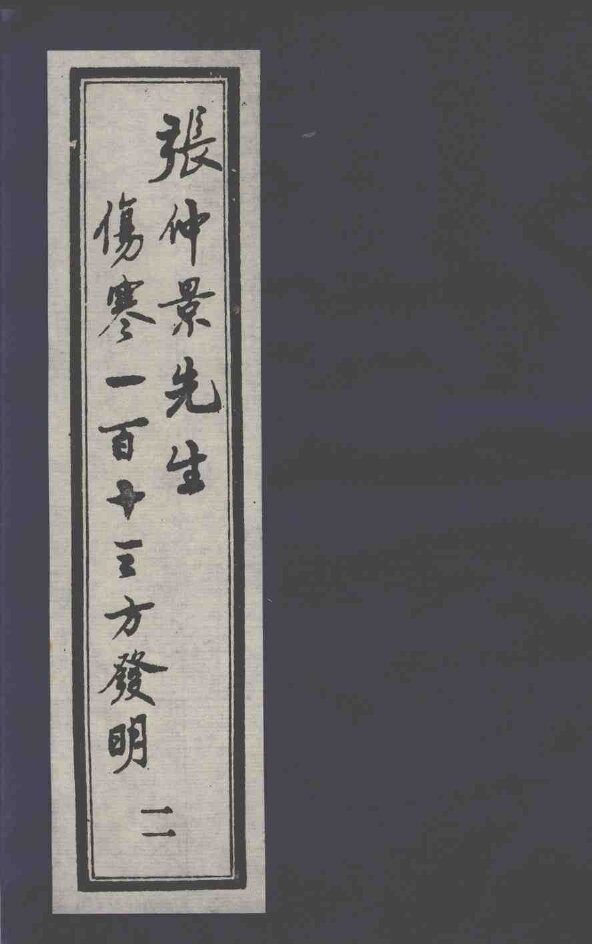 張仲景先生
傷寒一百十三方發明
二